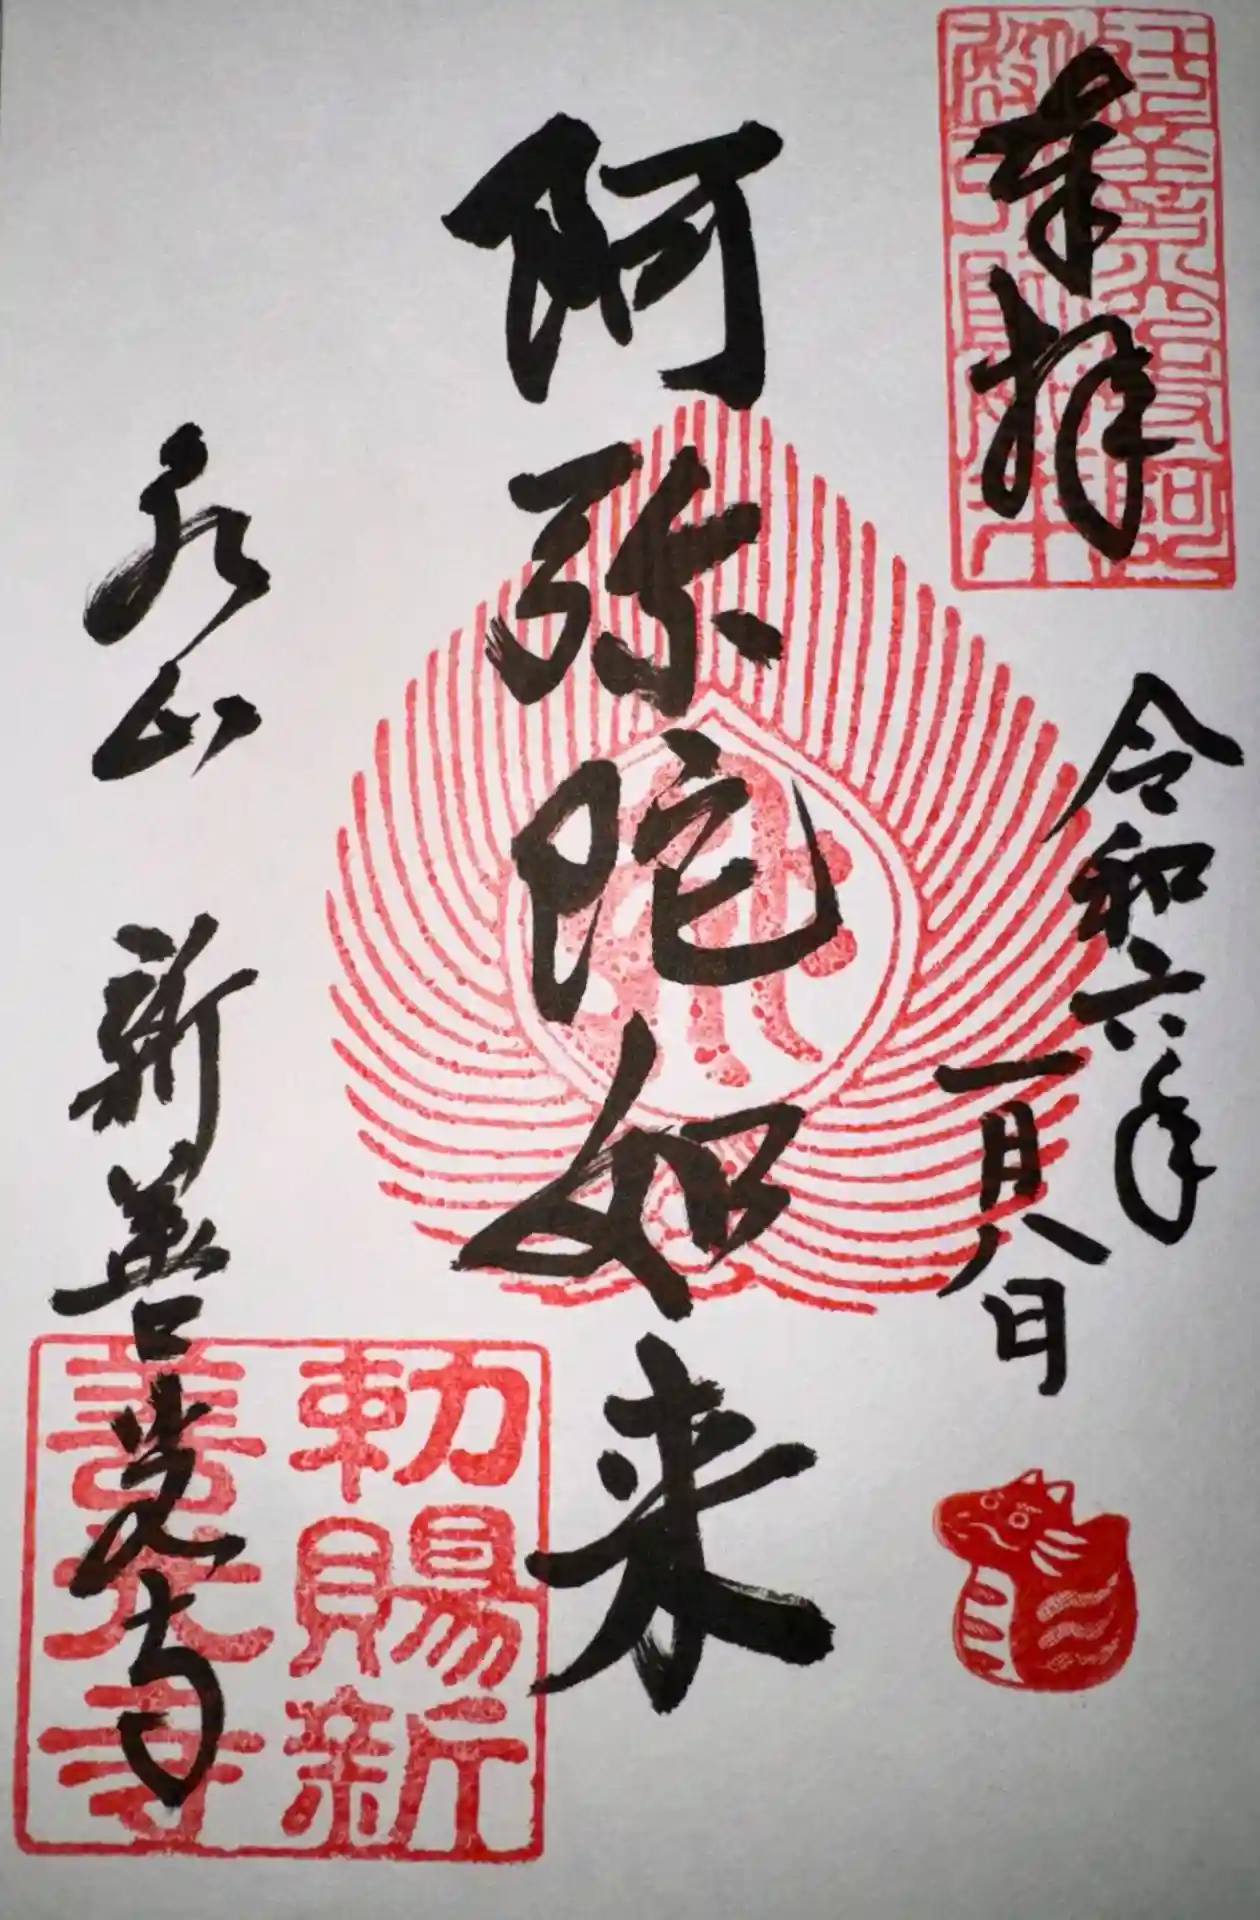 奉拝
令和六年
一月八日
阿弥陀如来
永山 新善光寺
勅賜新
善光寺